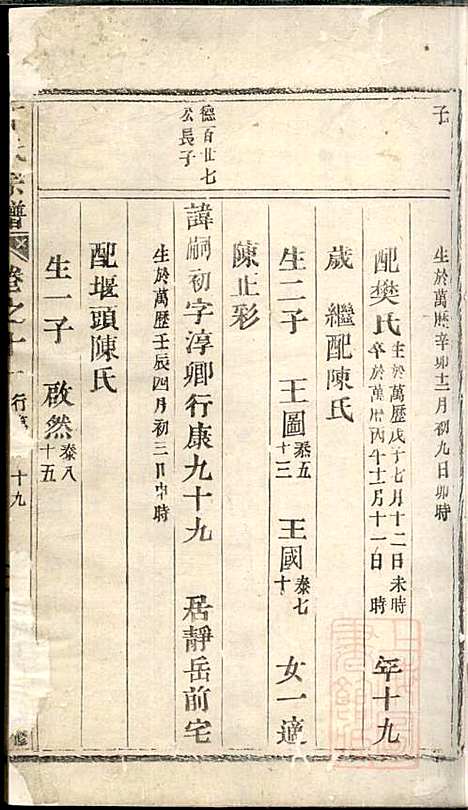 子
生於萬歷辛卯十二月初九日卯時
配樊氏 生於萬歷戊子七月十二日未時 卒於萬歷丙午十一月十一日 時 年十九
歲 繼配陳氏
生二子 王圖 泰五十三 王國 泰七十 女一適
陳止彩
德百廿七
公長子
諱嗣初字淳卿行康九十九 居靜岳前宅
生於萬歷壬辰四月初三日申時
配堰頭陳氏
生一子 啟然 泰八十五
氏宗譜 卷之十一 行第 十九